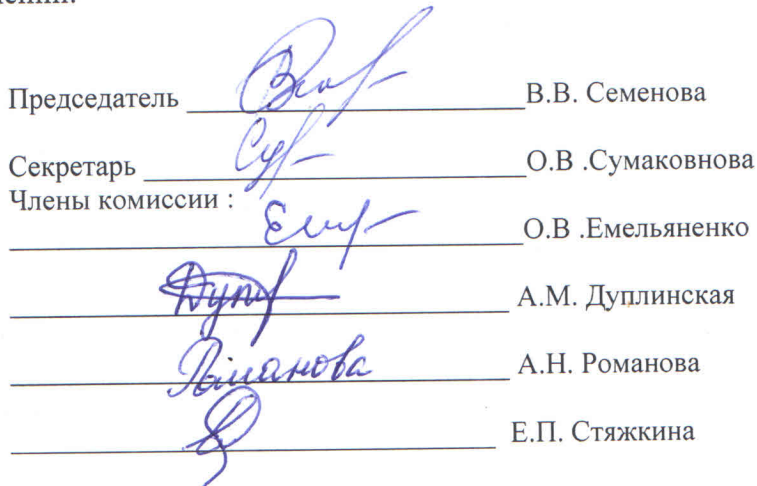 Председатель В.В. Семенова
Секретарь О.В .Сумаковнова
Члены комиссии :
О.В .Емельяненко
А.М. Дуплинская
Романова А.Н. Романова
Е.П. Стяжкина